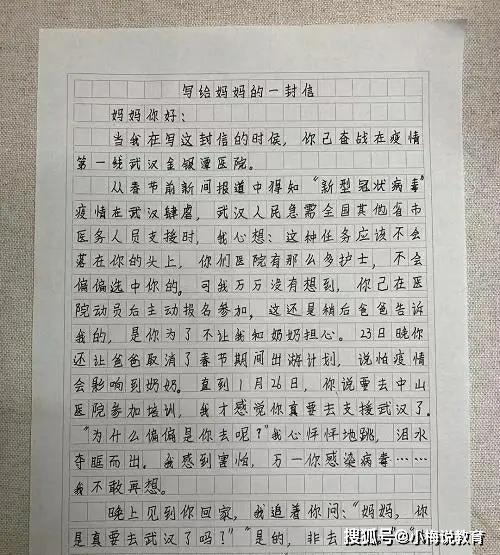 写给妈妈的一封信
妈妈你好：
当我在写这封信的时候，你已奋战在疫情
第一线武汉金银潭医院。
从春节前新闻报道中得知“新型冠状病毒”
疫情在武汉肆虐，武汉人民急需全国其他省市
医务人员支援时，我心想：这种任务应该不会
落在你的头上，你们医院有那么多护士，不会
偏偏选中你的。可我万万没有想到，你已在医
院动员后主动报名参加，这还是稍后爸爸告诉
我的，是你为了不让我和奶奶担心。23日晚你
还让爸爸取消了春节期间出游计划，说怕疫情
会影响到奶奶。直到1月26日，你说要去中山
医院参加培训，我才感觉你真要去支援武汉了。
“为什么偏偏是你去呢？”我心怦怦地跳，泪水
夺眶而出。我感到害怕，万一你感染病毒……
我不敢再想。
晚上见到你回家，我追着你问：“妈妈，你
是真要去武汉了吗？”“是的，非去
搜狐号@小梅说教育